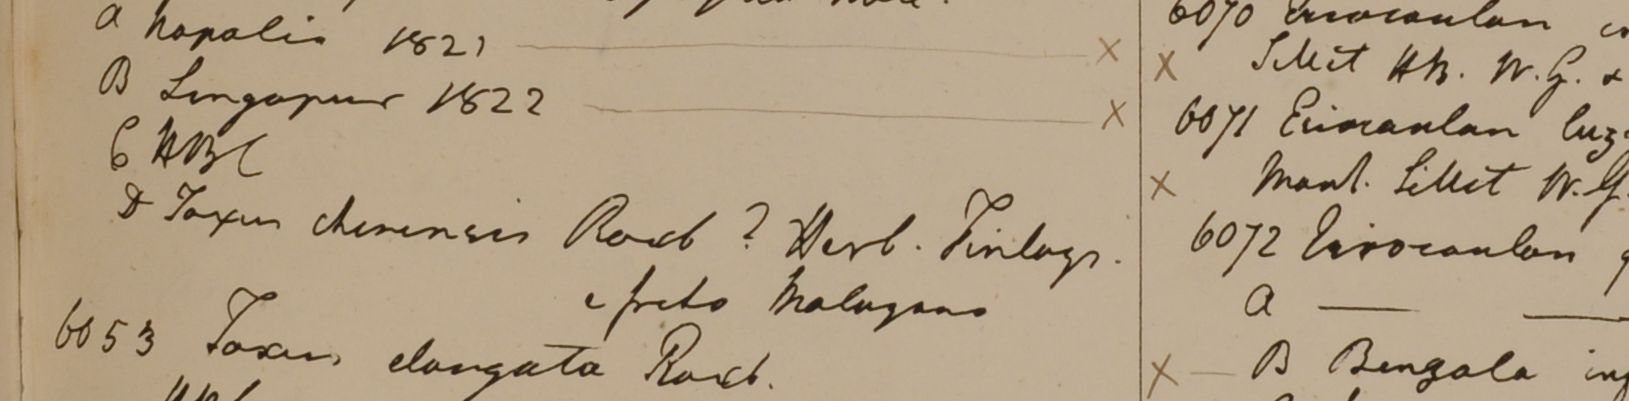 a Napalia 1821 x
B Singapur 1822 x
C HBC
D Taxus chinensis Roxb ? Herb. Finlays.
e freto Malayano
6053 Taxus elongata Roxb.
6070 Eriocaulon
x Sillet HB. W.G. &
6071 Eriocaulon luz
x Mont. Sillet W.G.
6072 Eriocaulon
a — —
x — B Bengala